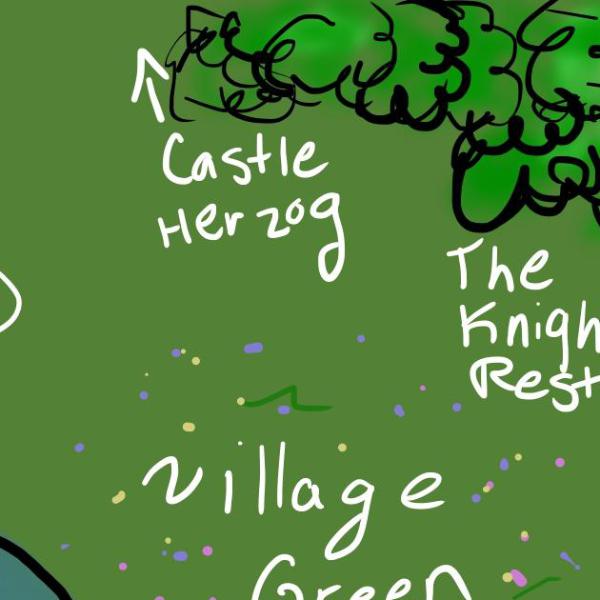 Castle
Herzog
The
Knigh
Rest
Village
Green